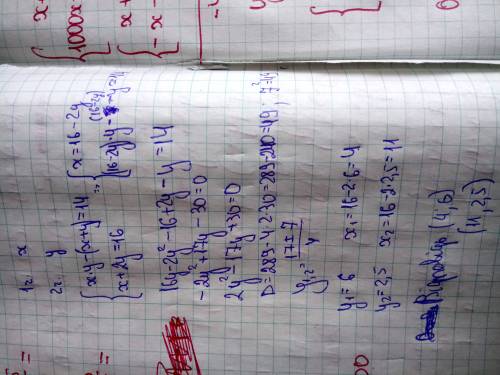 1ч. x
2ч. y
{ x·y-(x+y)=14 { x=16-2y
{ x+2y=16 ; { (16-2y)·y-(16-2y)-y=14
16y-2y²-16+2y-y=14
-2y²+17y-30=0
2y²-17y+30=0
D=289-4·2·30=289-240=49; 7²=49
y₁,₂= 17±7
4
y₁=6 x₁=16-2·6=4
y₂=2,5 x₂=16-2·2,5=11
Відповідь (4; 6)
(11; 2,5)
1000x
-x-